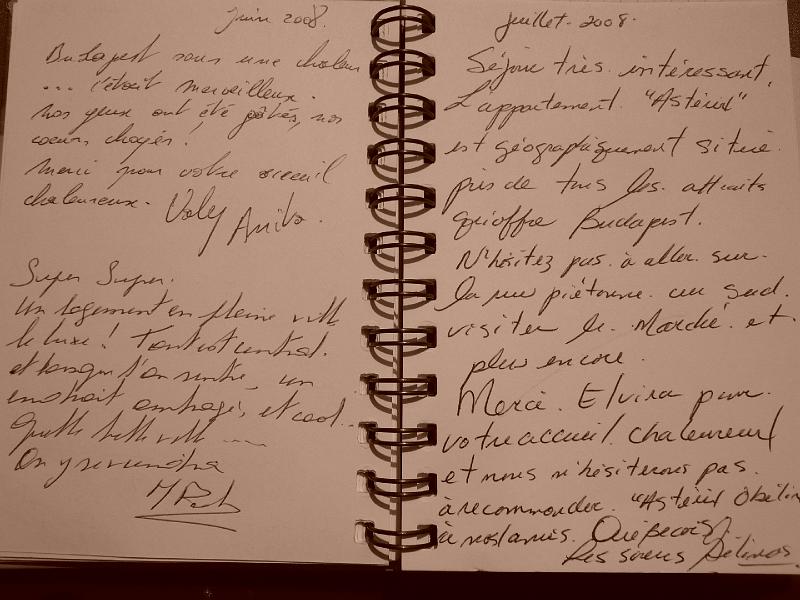 Juin 2008.
Budapest sous une chaleur
... c'était merveilleux.
nos yeux ont été gâtés, nos
coeurs choyés !
merci pour votre accueil
chaleureux. Valy Anita.
Super Super.
Un logement en pleine ville
le luxe ! Tout est central.
et lorsque l'on rentre, un
endroit ombragé, et cool...
Quelle belle ville ....
On y reviendra
juillet. 2008.
Séjour très intéressant,
L'appartement. "Astérix"
est géographiquement situé.
près de tous les attraits
qu'offre Budapest.
N'hésitez pas à aller sur.
la rue piétonne. au sud.
visiter le Marché. et.
plus encore.
Merci. Elvira pour.
votre accueil. chaleureux
et nous n'hésiterons pas.
à recommander. "Astérix Obélix
à nos amis. Québecois).
Les soeurs